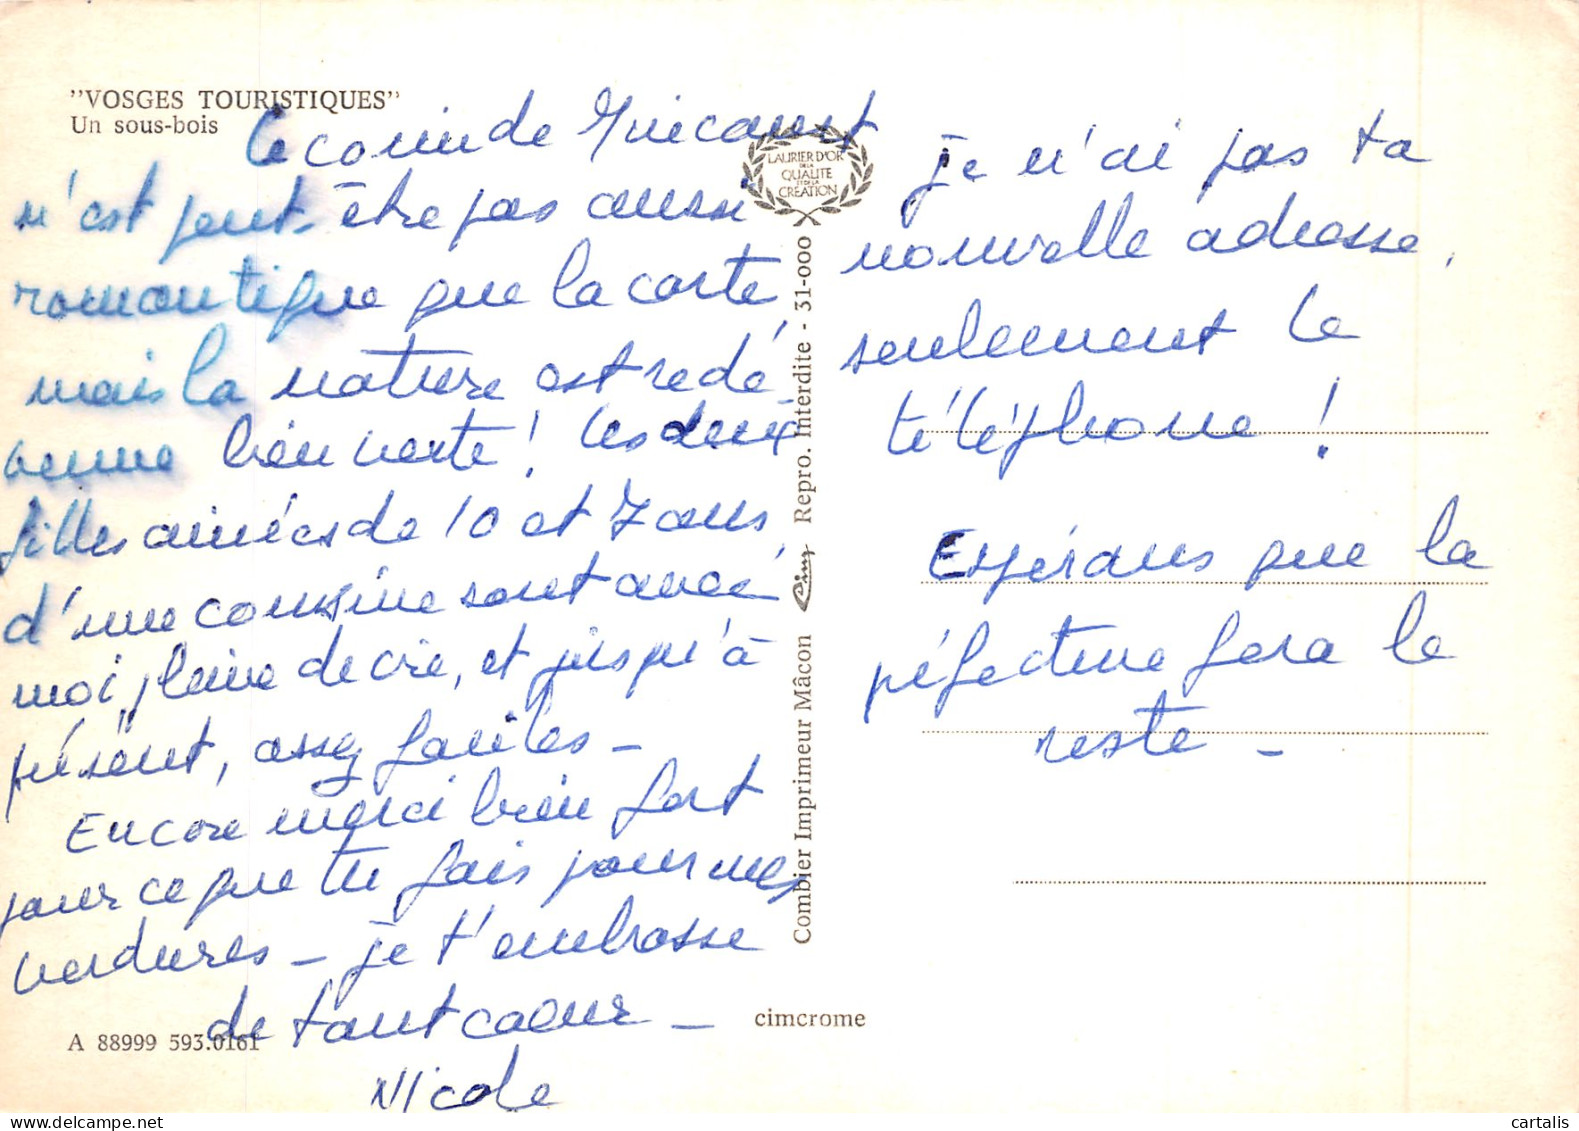 "VOSGES TOURISTIQUES"
Un sous-bois
Le coin de Mirecourt
n'est peut-être pas aussi
romantique que la carte,
mais la nature est rede-
venue bien verte ! Les deux
filles ainées de 10 et 7 ans,
d'une cousine sont avec
moi, pleine de vie, et jusqu'à
présent, assez faciles -
Encore merci bien fort
pour ce que tu fais pour mes
verdures - je t'embrasse
de tout coeur -
Nicole
A 88999 593.0161
LAURIER D'OR
DE LA
QUALITE
ET DE LA
CREATION
Combier Imprimeur Mâcon Cim Repro. Interdite - 31-000
cimcrome
je n'ai pas ta
nouvelle adresse,
seulement le
téléphone !
Espérans que la
préfecture fera le
reste -
cartalis